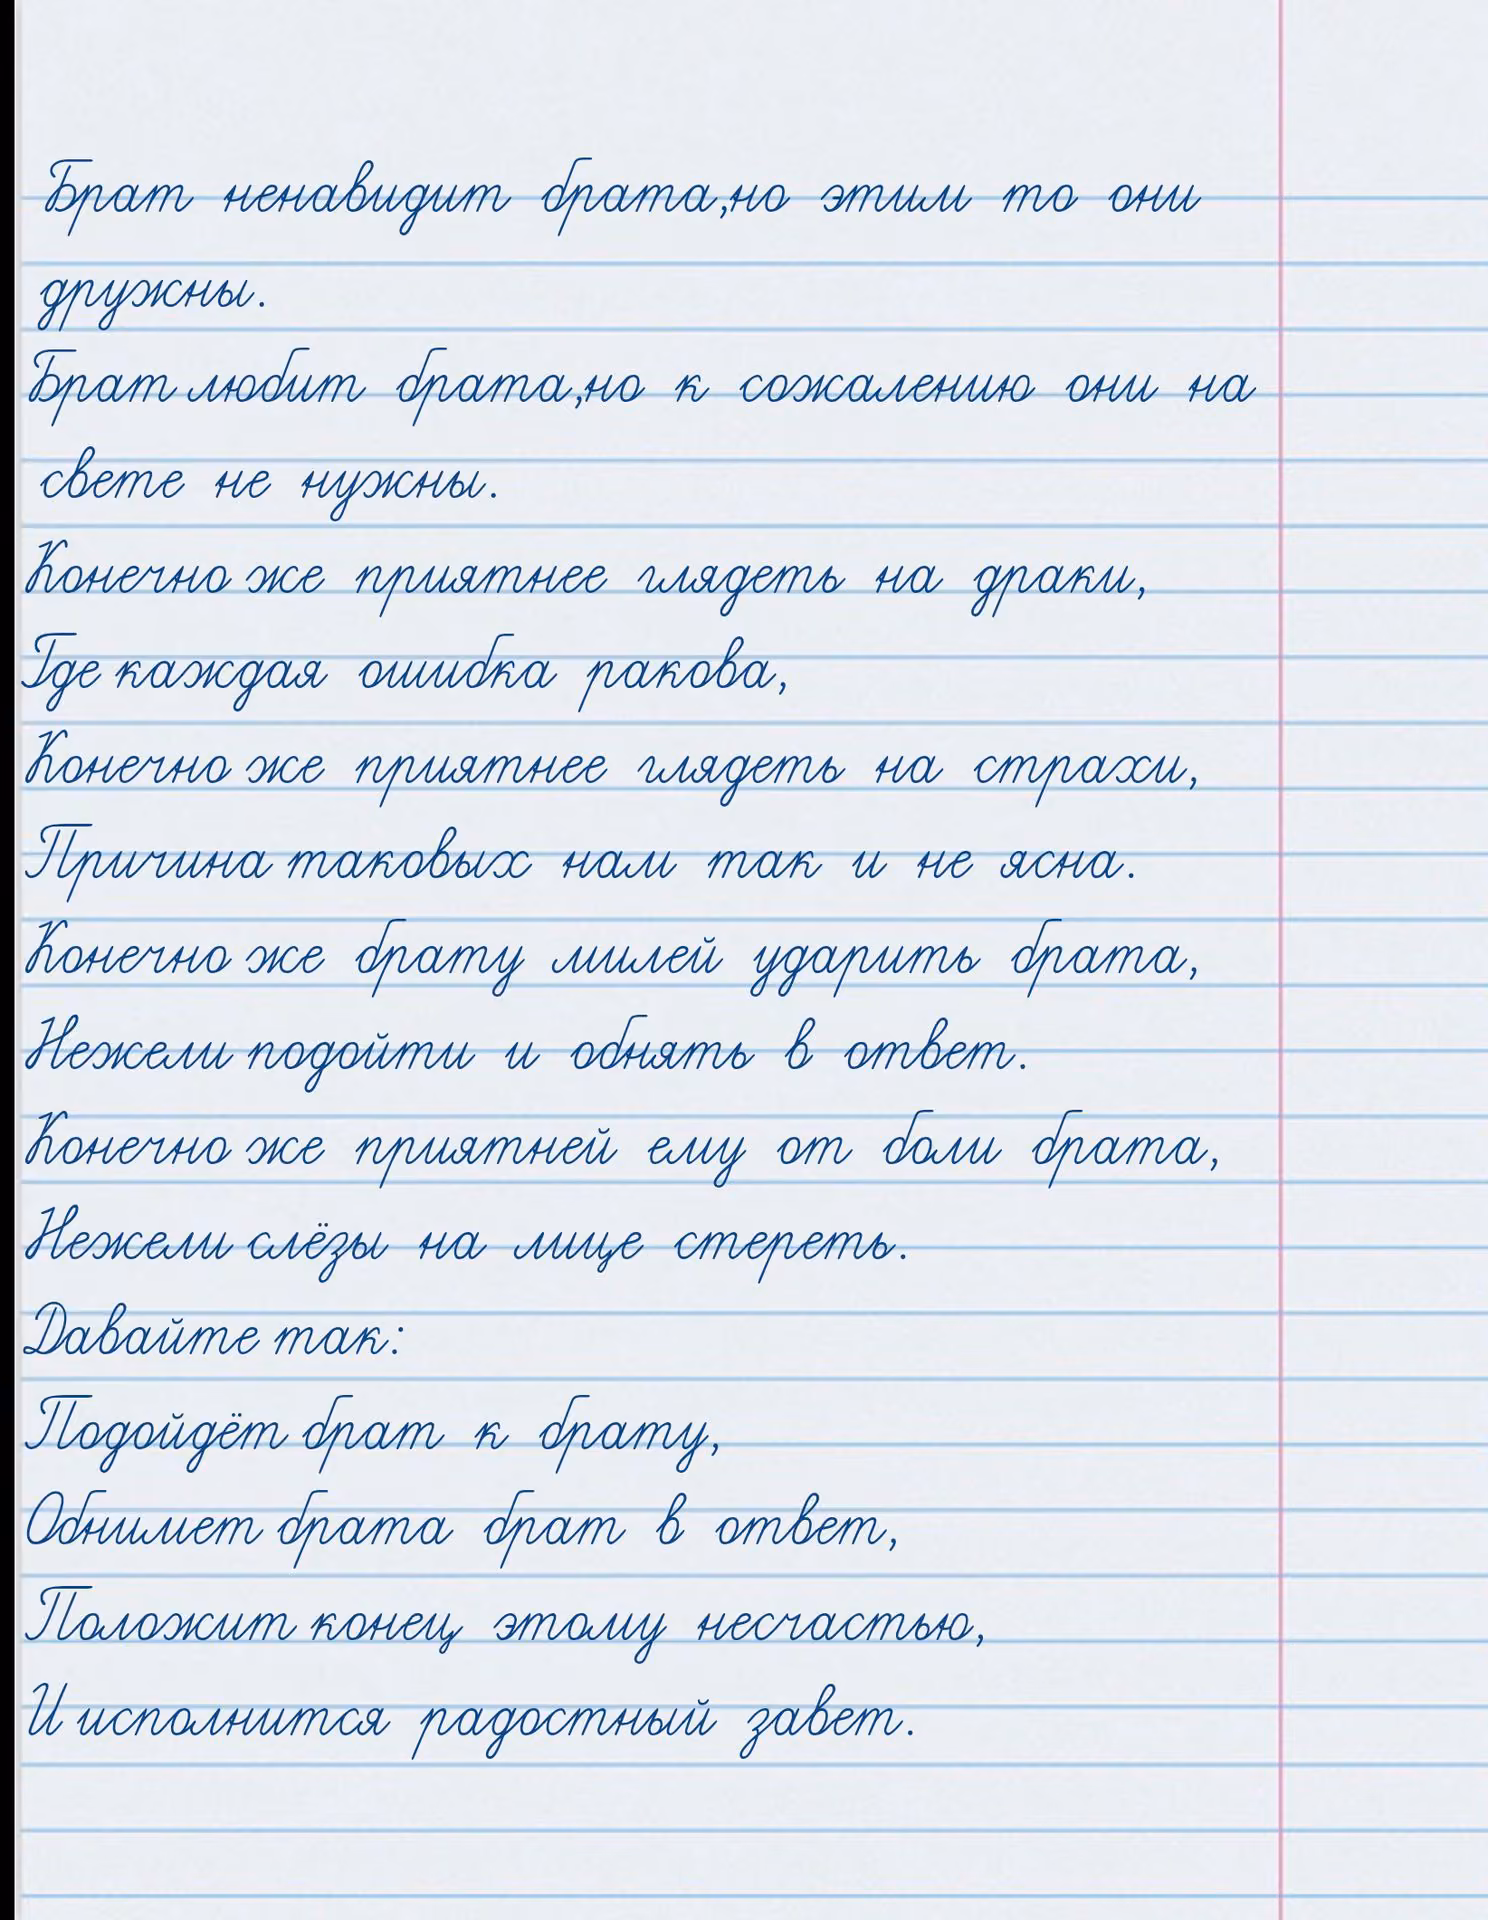 Брат ненавидит брата,но этим то они
дружны.
Брат любит брата,но к сожалению они на
свете не нужны.
Конечно же приятнее глядеть на драки,
Где каждая ошибка ракова,
Конечно же приятнее глядеть на страхи,
Причина таковых нам так и не ясна.
Конечно же брату милей ударить брата,
Нежели подойти и обнять в ответ.
Конечно же приятней ему от боли брата,
Нежели слёзы на лице стереть.
Давайте так:
Подойдёт брат к брату,
Обнимет брата брат в ответ,
Положит конец этому несчастью,
И исполнится радостный завет.